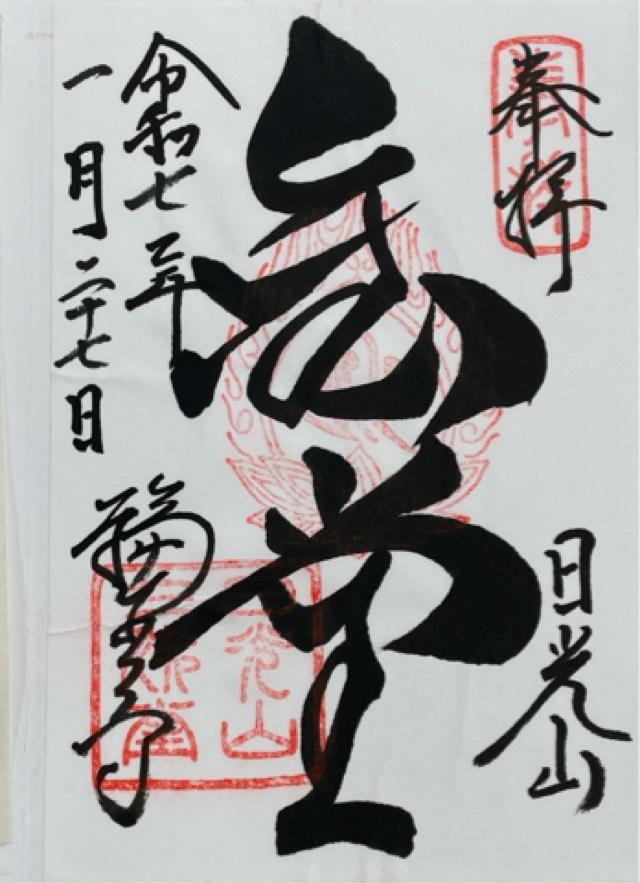 奉拝
日光山
堂
令和七年
一月二十七日
輪王寺